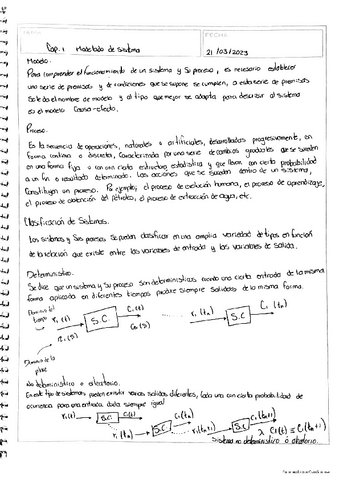 FECHA
21/03/2023
Cap. 1 Modelado de Sistema
Modelo.
Para comprender el funcionamiento de un sistema y su proceso, es necesario establecer
una serie de premisas y de condiciones que se supone se cumplen, a esta serie de premisas
se le da el nombre de modelo y al tipo que mejor se adapta para describir al sistema
es el modelo Causa-efecto.
Proceso.
Es la secuencia de operaciones, naturales o artificiales, desarrolladas progresivamente, en
forma continua o discreta, caracterizada por una serie de cambios graduales que se suceden
en una forma fija o con una cierta estructura estadística y que llevan con cierta probabilidad
a un fin o resultado determinado. Las acciones que se suceden dentro de un sistema,
Constituyen un proceso. Por ejemplo; el proceso de evolución humana, el proceso de aprendizaje,
el proceso de obtención del petróleo, el proceso de extracción de agua, etc.
Clasificación de Sistemas.
Los sistemas y sus procesos se pueden clasificar en una amplia variedad de tipos en función
de la relación que existe entre las variables de entrada y las variables de salida.
Determinístico.
Se dice que un sistema y su proceso son determinísticos cuando una cierta entrada de la misma
forma aplicada en diferentes tiempos produce siempre salidas de la misma forma.
Dominio del tiempo
r₁(t) S.C. C₁(t) r₁(tₙ) S.C C₁(tₙ)
R₁(s) C₁(s)
Dominio de la
No determinístico o aleatorio.
En este tipo de sistemas pueden existir varias salidas diferentes, cada una con cierta probabilidad de
ocurrencia para una entrada dada siempre igual
r₁(t) S.C C₁(t) r₁(tₙ) S.C C₁(tₙ) S.C
Sistema no determinístico ó aleatorio.